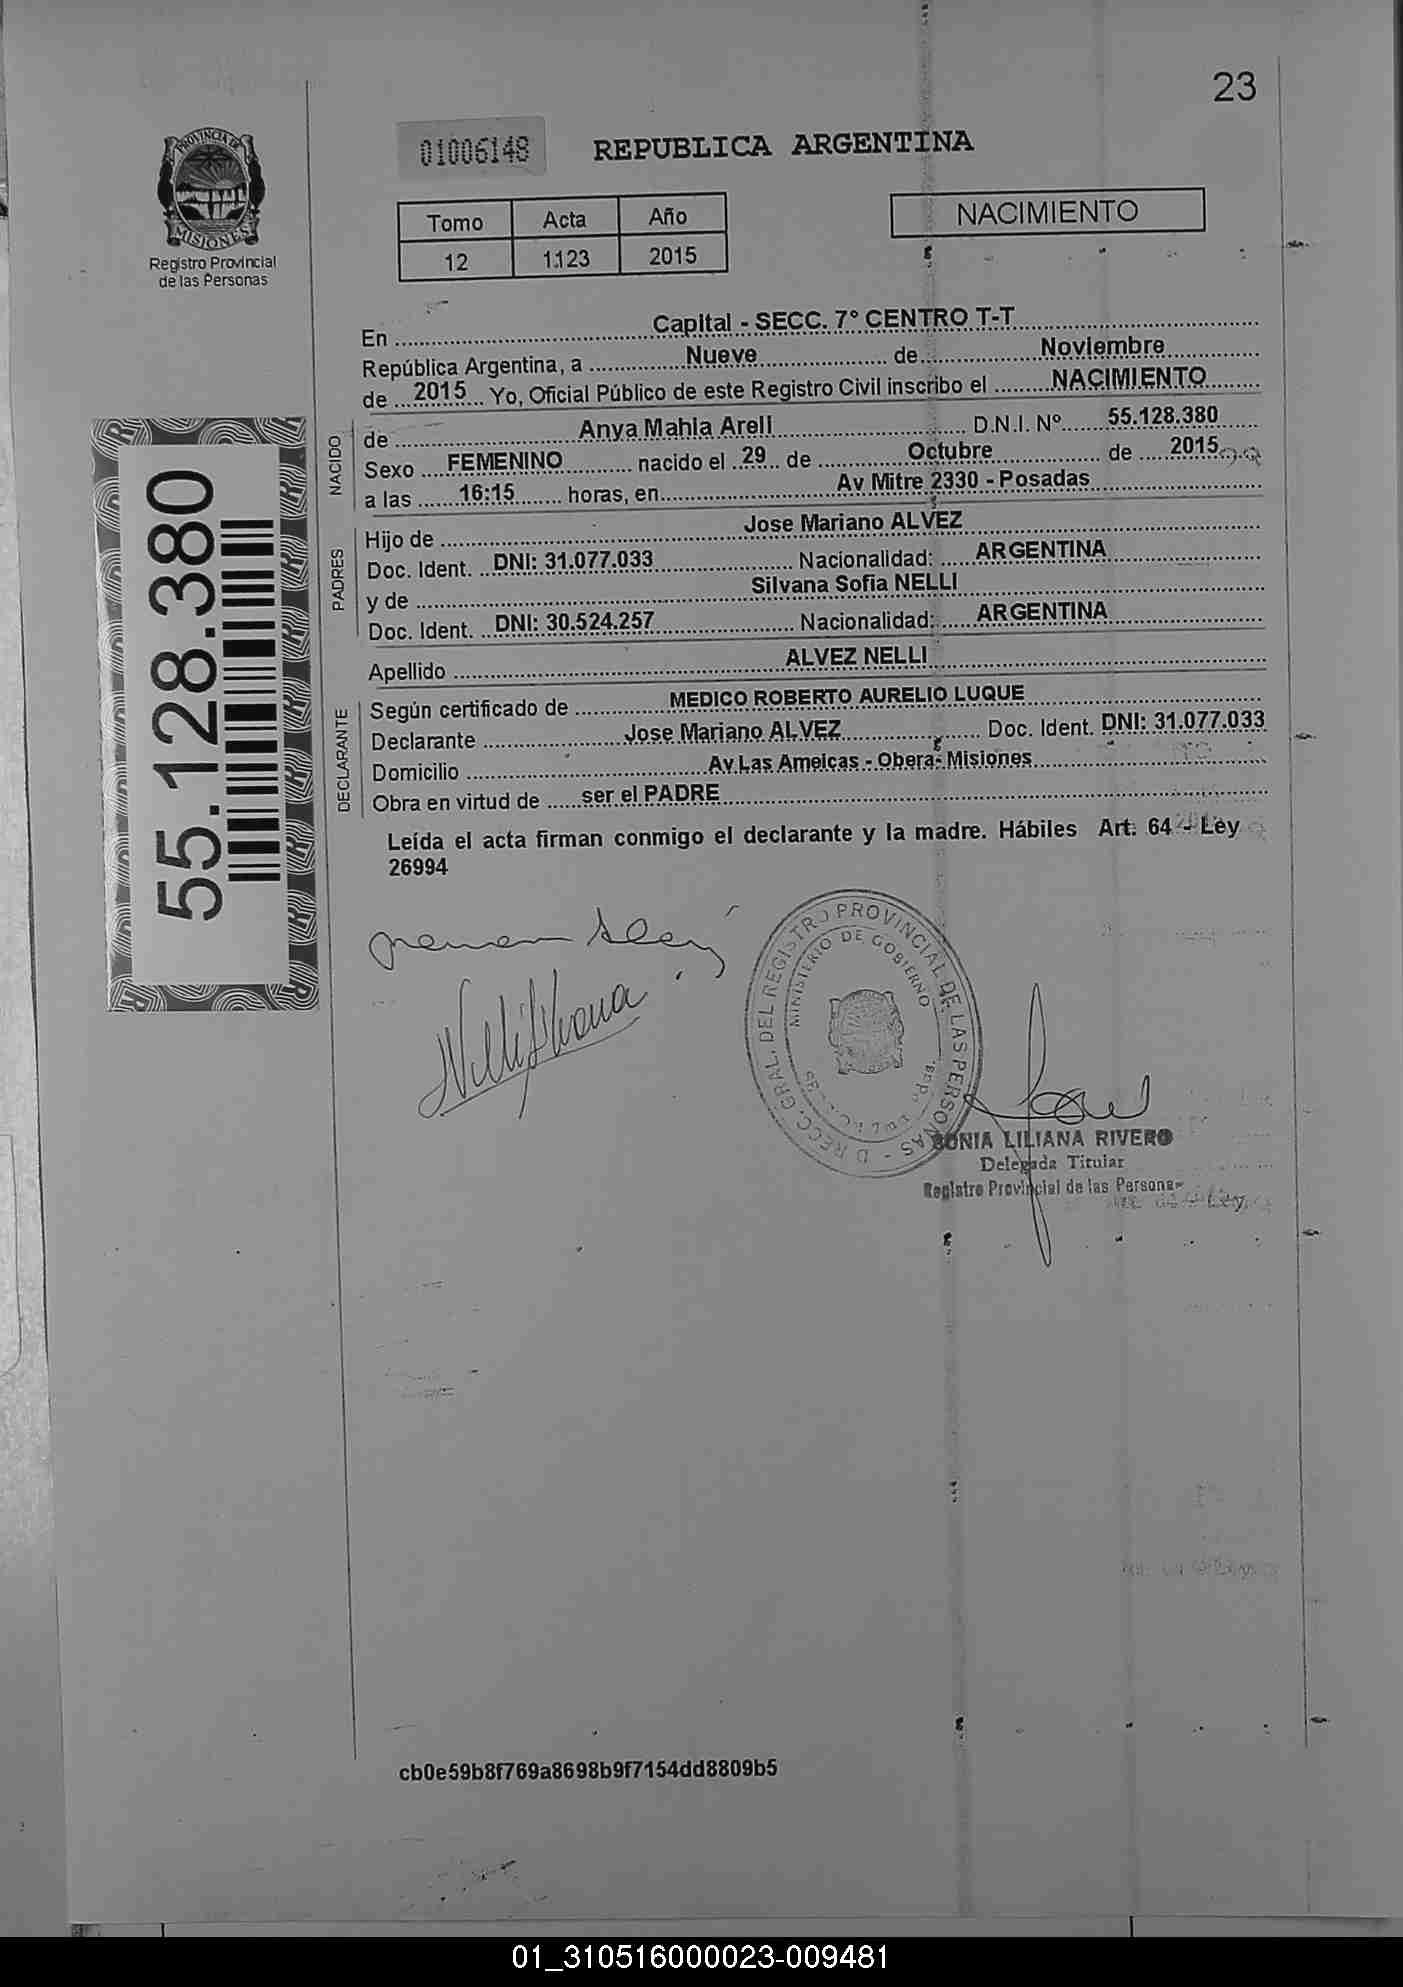 23
PROVINCIA DE
MISIONES
Registro Provincial
de las Personas
01006148
REPUBLICA ARGENTINA
Tomo Acta Año
12 1123 2015
NACIMIENTO
En Capital - SECC. 7° CENTRO T-T
República Argentina, a Nueve de Noviembre
de 2015 Yo, Oficial Público de este Registro Civil inscribo el NACIMIENTO
NACIDO
de Anya Mahia Areli D.N.I. Nº 55.128.380
Sexo FEMENINO nacido el 29 de Octubre de 2015
a las 16:15 horas, en Av Mitre 2330 - Posadas
PADRES
Hijo de Jose Mariano ALVEZ
Doc. Ident. DNI: 31.077.033 Nacionalidad: ARGENTINA
y de Silvana Sofia NELLI
Doc. Ident. DNI: 30.524.257 Nacionalidad: ARGENTINA
Apellido ALVEZ NELLI
DECLARANTE
Según certificado de MEDICO ROBERTO AURELIO LUQUE
Declarante Jose Mariano ALVEZ Doc. Ident. DNI: 31.077.033
Domicilio Av Las Ameicas - Obera- Misiones
Obra en virtud de ser el PADRE
Leída el acta firman conmigo el declarante y la madre. Hábiles Art. 64 - Ley
26994
55.128.380
Nelli Silvana
DIRECC. GRAL. DEL REGISTRO PROVINCIAL DE LAS PERSONAS
MINISTERIO DE GOBIERNO
SONIA LILIANA RIVERO
Delegada Titular
Registro Provincial de las Personas
cb0e59b8f769a8698b9f7154dd8809b5
01_310516000023-009481